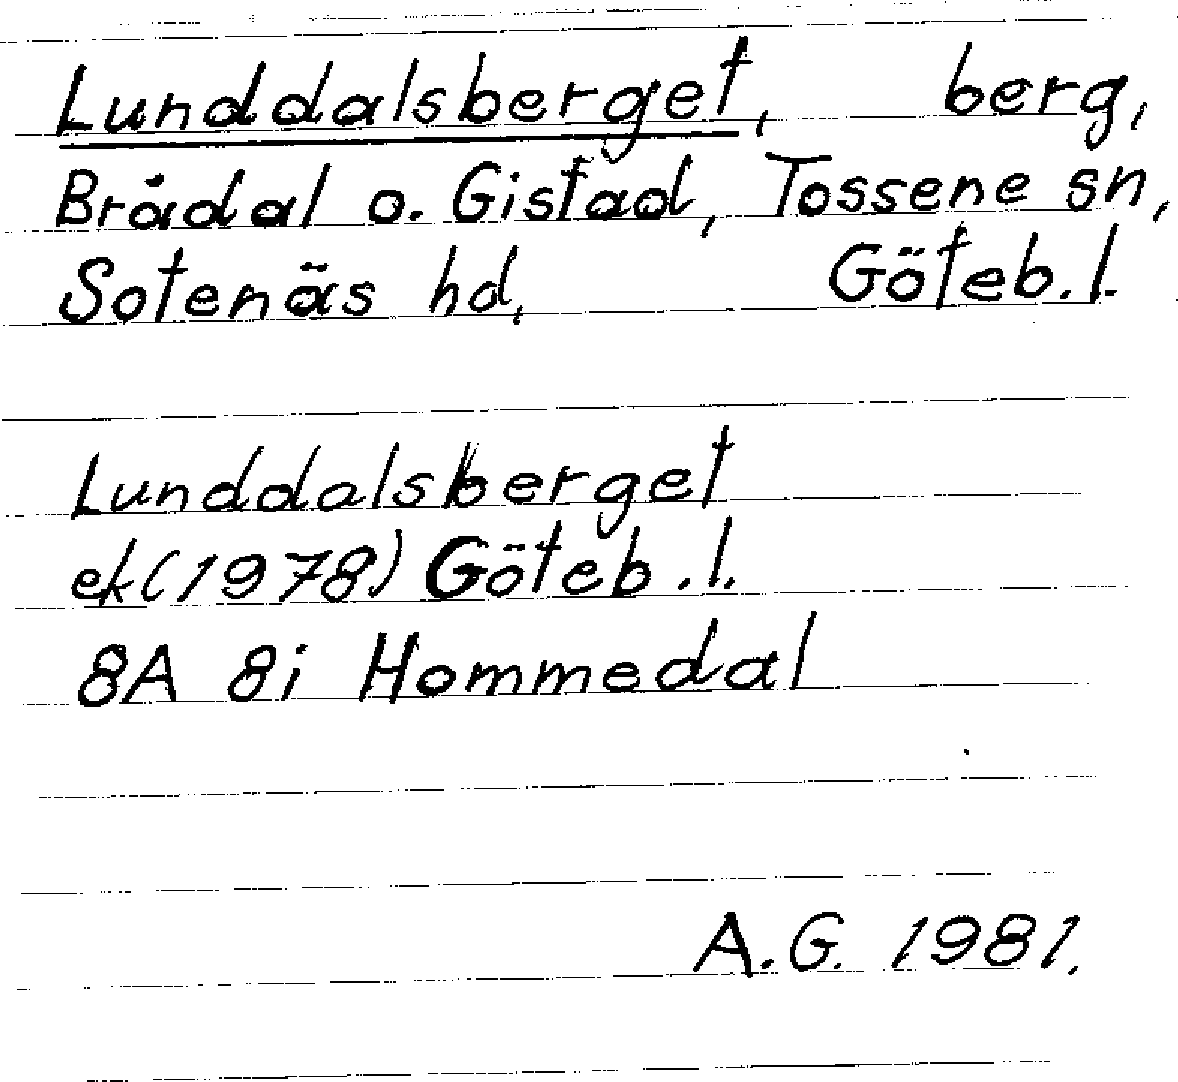 Lunddalsberget, berg,
Brådal o. Gistad, Tossene sn,
Sotenäs hd, Göteb.l.
Lunddalsberget
ek(1978) Göteb.l.
8A 8i Hommedal
A.G. 1981.